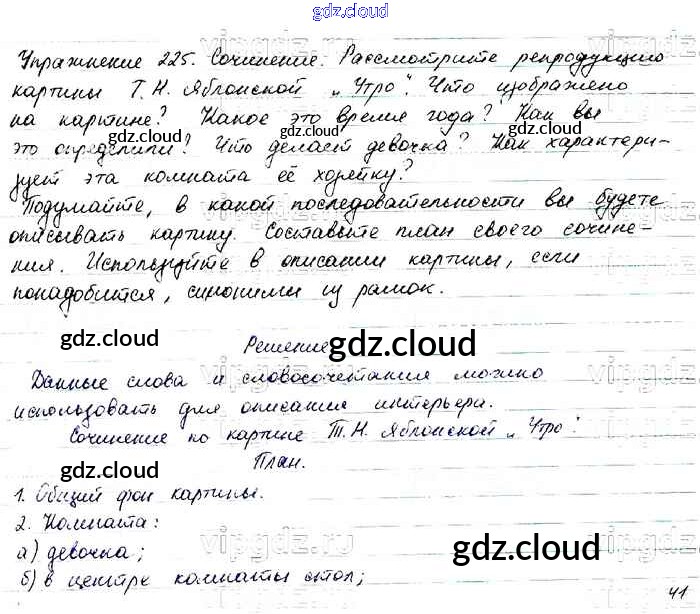 gdz.cloud
Упражнение 225. Сочинение. Рассмотрите репродукцию
картины Т. Н. Яблонской „Утро". Что изображено
gdz.cloud
на картине? Какое это время года? Как вы
gdz.cloud gdz.cloud
это определили? Что делает девочка? Как характери-
зует эта комната её хозяйку?
Подумайте, в какой последовательности вы будете
описывать картину. Составьте план своего сочине-
ния. Используйте в описании картины, если
понадобится, синонимы из рамок.
gdz.cloud gdz.cloud
Решение
vipgdz.ru
Данные слова и словосочетания можно
использовать для описания интерьера.
Сочинение по картине Т. Н. Яблонской „Утро".
План.
gdz.cloud gdz.cloud
1. Общий фон картины.
2. Комната:
vipgdz.ru vipgdz.ru
а) девочка;
gdz.cloud gdz.cloud
б) в центре комнаты стол;
41